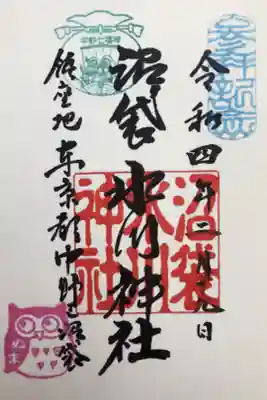 参拝記念
令和四年二月九日
沼袋氷川神社
沼袋氷川神社
鎮座地 東京都中野区沼袋
中野七福神
ぬま